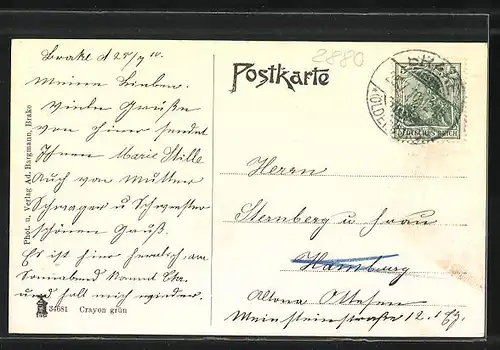 Brake d 27/7 10.
Meine Lieben.
Viele Grüße
von hier sendet
Ihnen Marie Stille
Auch von Mutter
Schwager u Schwester
schönen Gruß.
Es ist hier herrlich am
Sonnabend kommt
und holt mich wieder.
Phot. u. Verlag Ad. Bargmann, Brake
34681 Crayon grün
2880
Postkarte
BRAKE
(OLDENB
DEUTSCHES REICH
Herrn
Sternberg u frau
Hamburg
Altona Ottesen
Weinsteinstraße 12. 1 Etg.